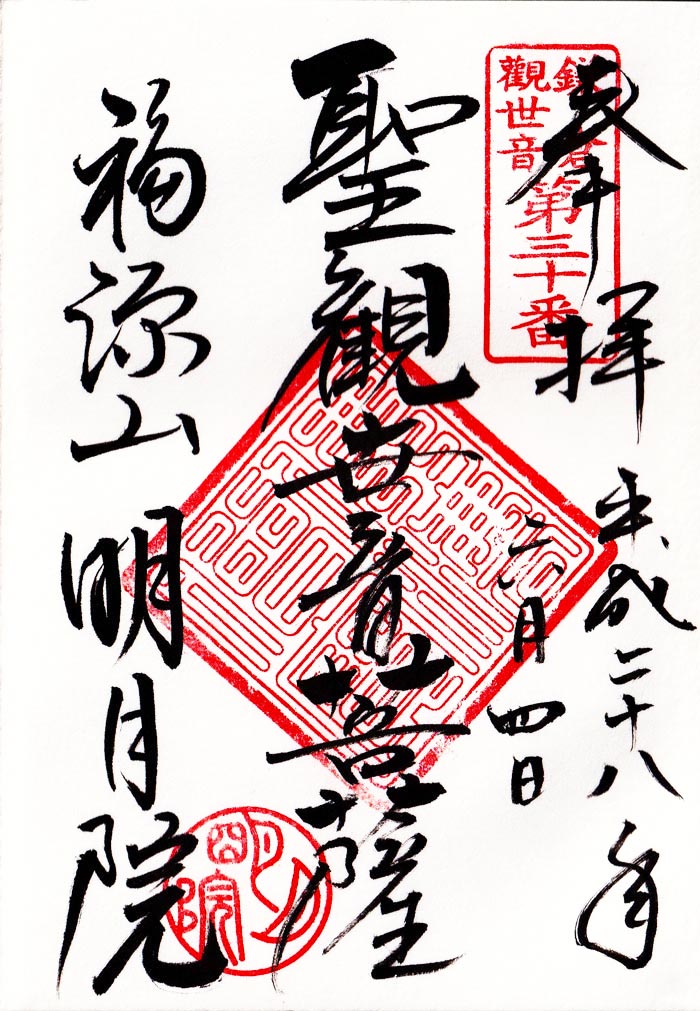 奉拝
平成二十八年
六月四日
鎌倉
觀世音
第三十番
聖觀世音菩薩
福源山
明月院